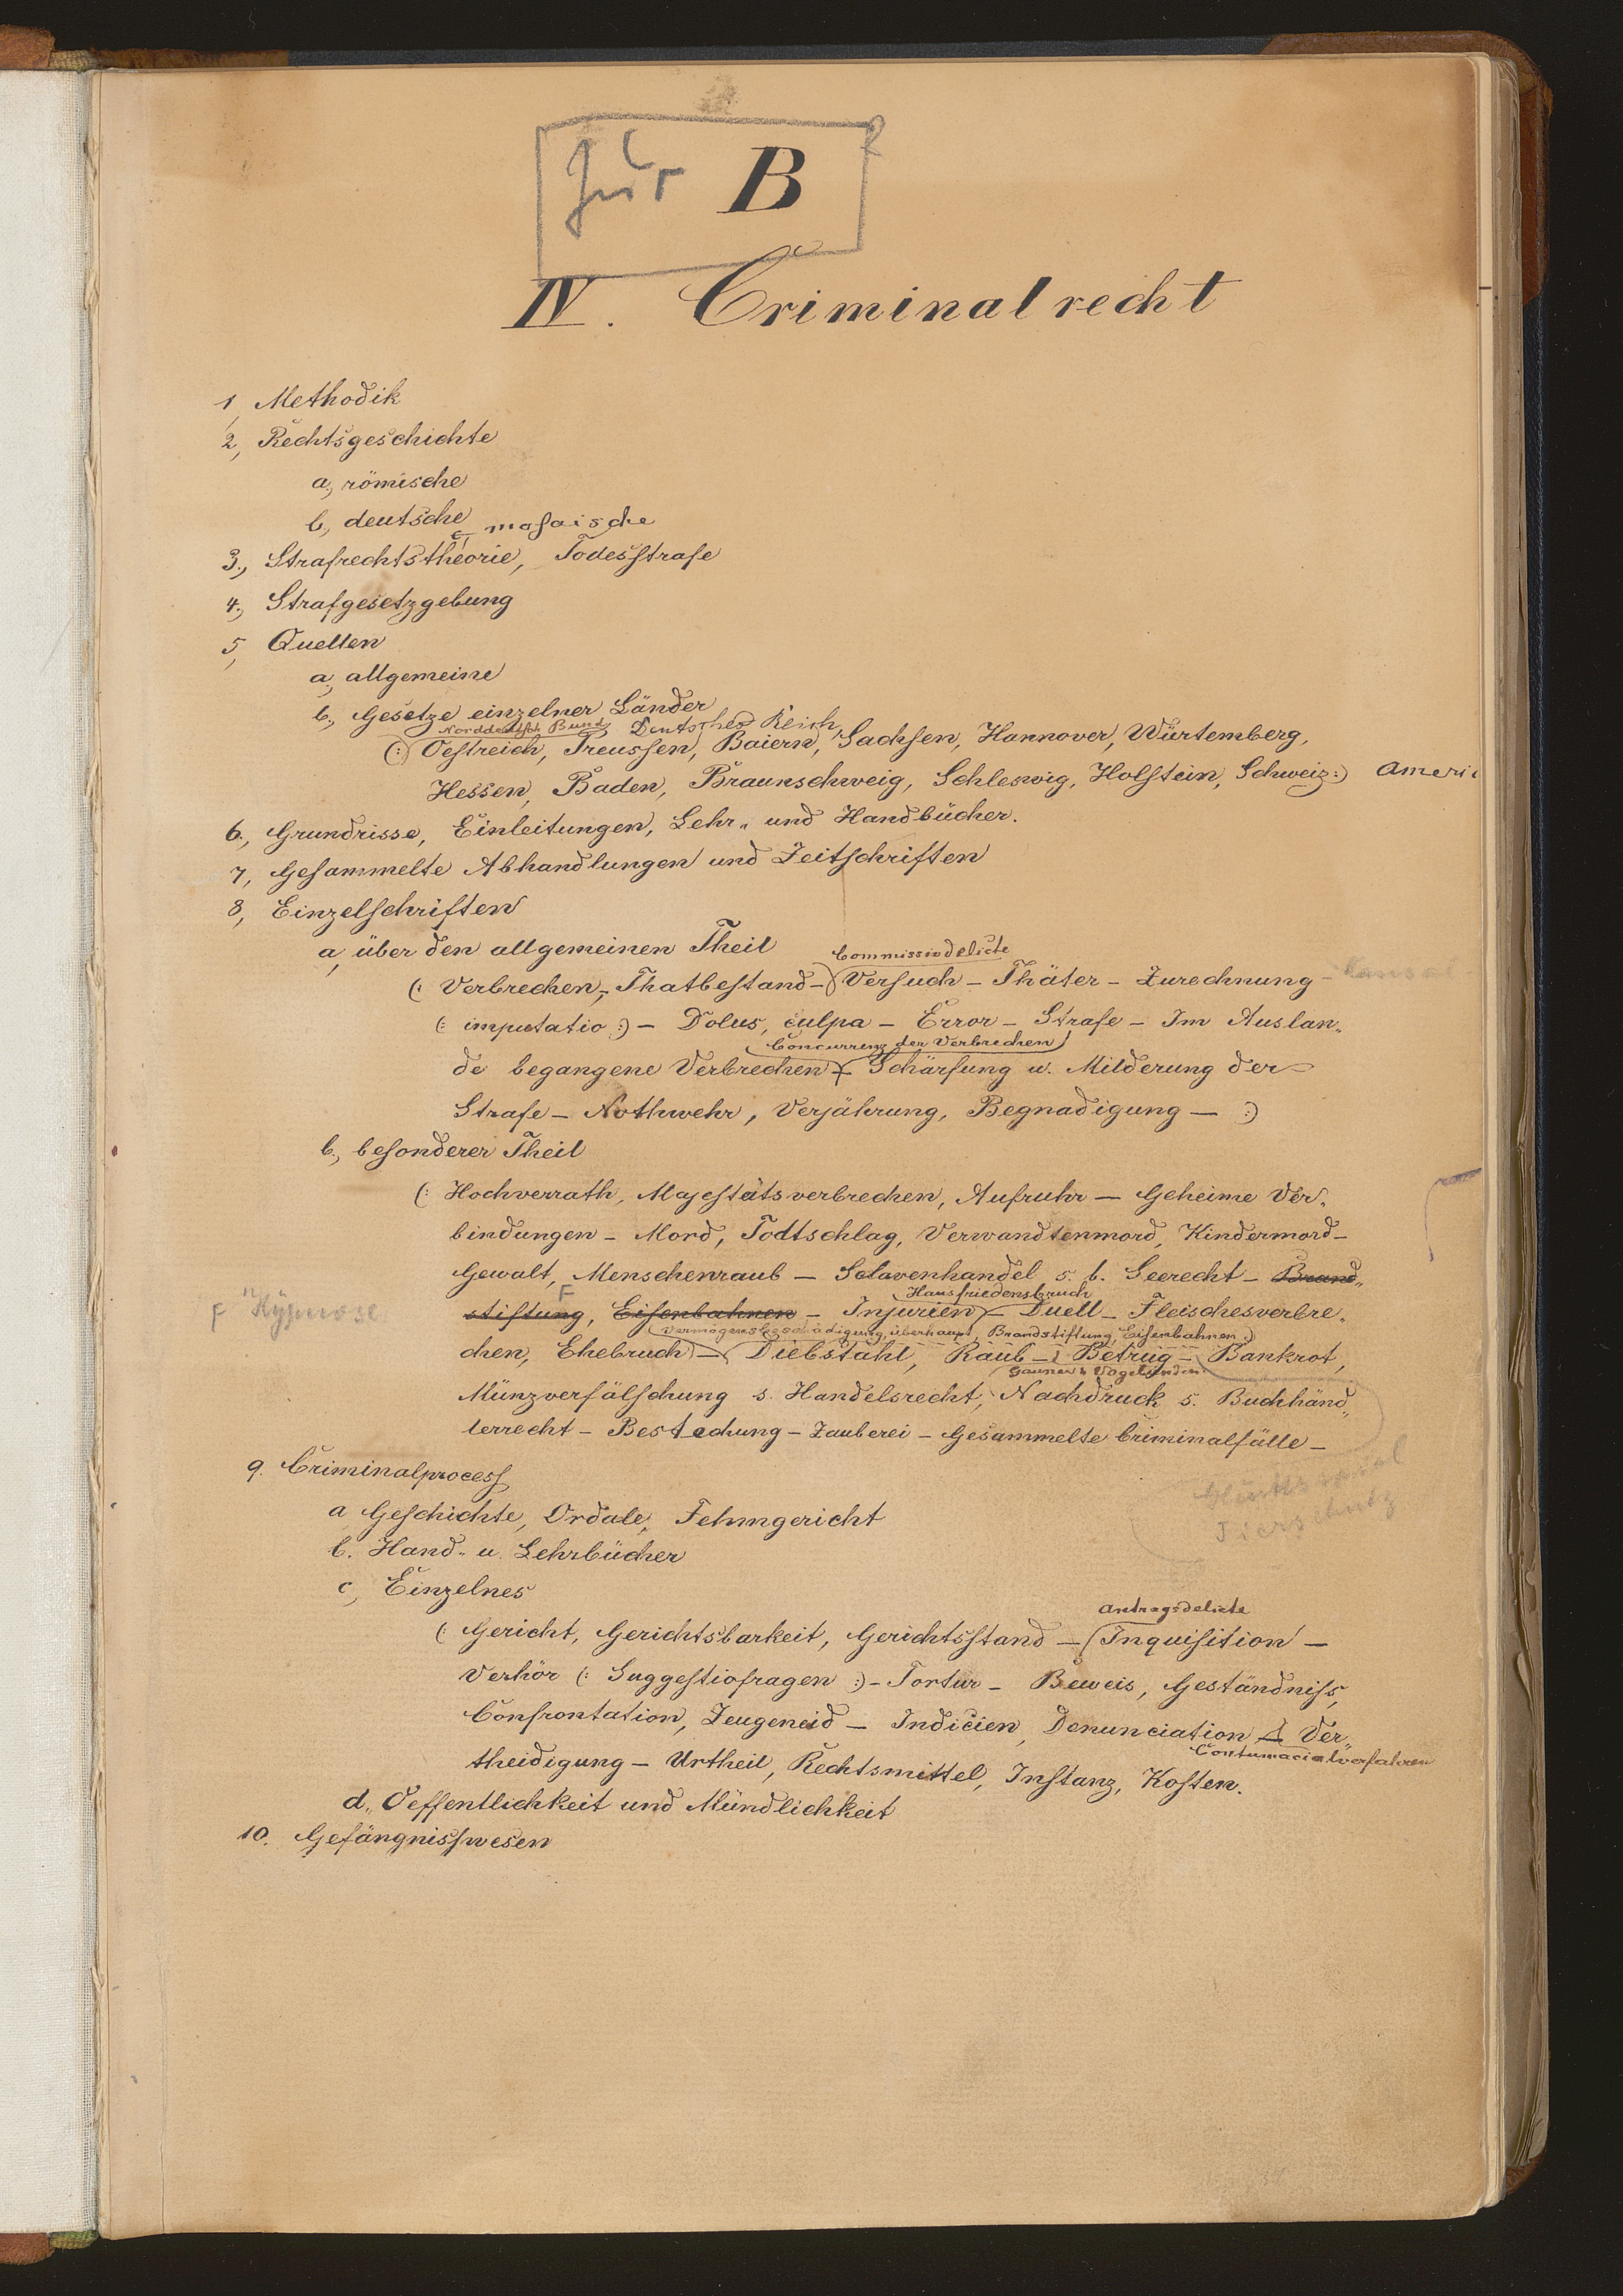 Jur B
IV. Criminalrecht
1, Methodik
2, Rechtsgeschichte
a, römische
b, deutsche
c, mosaische
3., Strafrechtstheorie, Todesstrafe
4., Strafgesetzgebung
5, Quellen
a, allgemeine
b., Gesetze einzelner Länder
Norddeutsch. Bund, Deutsches Reich,
(: Oestreich, Preussen, Baiern, Sachsen, Hannover, Würtemberg,
Hessen, Baden, Braunschweig, Schleswig, Holstein, Schweiz:) Ameri
6., Grundrisse, Einleitungen, Lehr- und Handbücher.
7, Gesammelte Abhandlungen und Zeitschriften
8, Einzelschriften
a, über den allgemeinen Theil
Commissivdelicte
(: Verbrechen, Thatbestand - Versuch - Thäter - Zurechnung - Causal
(: imputatio :) - Dolus, culpa - Error - Strafe - Im Auslan-
Concurrenz der Verbrechen
de begangene Verbrechen - Schärfung u. Milderung der
Strafe - Nothwehr, Verjährung, Begnadigung - :)
b., besonderer Theil
(: Hochverrath, Majestätsverbrechen, Aufruhr - Geheime Ver-
bindungen - Mord, Todtschlag, Verwandtenmord, Kindermord -
Gewalt, Menschenraub - Sclavenhandel s. b. Seerecht - Brand-
Hausfriedensbruch
F Hypnose
stiftung, F Eisenbahnen - Injurien - Duell - Fleischesverbre-
Vermögensbeschädigung überhaupt, Brandstiftung, Eisenbahnen
chen, Ehebruch - Diebstahl, Raub - Betrug - Bankrot,
Gauner u Vagabunden
Münzverfälschung s. Handelsrecht, Nachdruck s. Buchhänd-
lerrecht - Bestechung - Zauberei - Gesammelte Criminalfälle -
Tierschutz
9. Criminalprocess
a Geschichte, Ordale, Fehmgericht
b. Hand- u. Lehrbücher
c, Einzelnes
Antragsdelicte
(: Gericht, Gerichtsbarkeit, Gerichtsstand - Inquisition -
Verhör (: Suggestiofragen :) - Tortur - Beweis, Geständniss,
Confrontation, Zeugeneid - Indicien, Denunciation - Ver-
Contumacialverfahren
theidigung - Urtheil, Rechtsmittel, Instanz, Kosten.
d., Oeffentlichkeit und Mündlichkeit
10. Gefängnisswesen